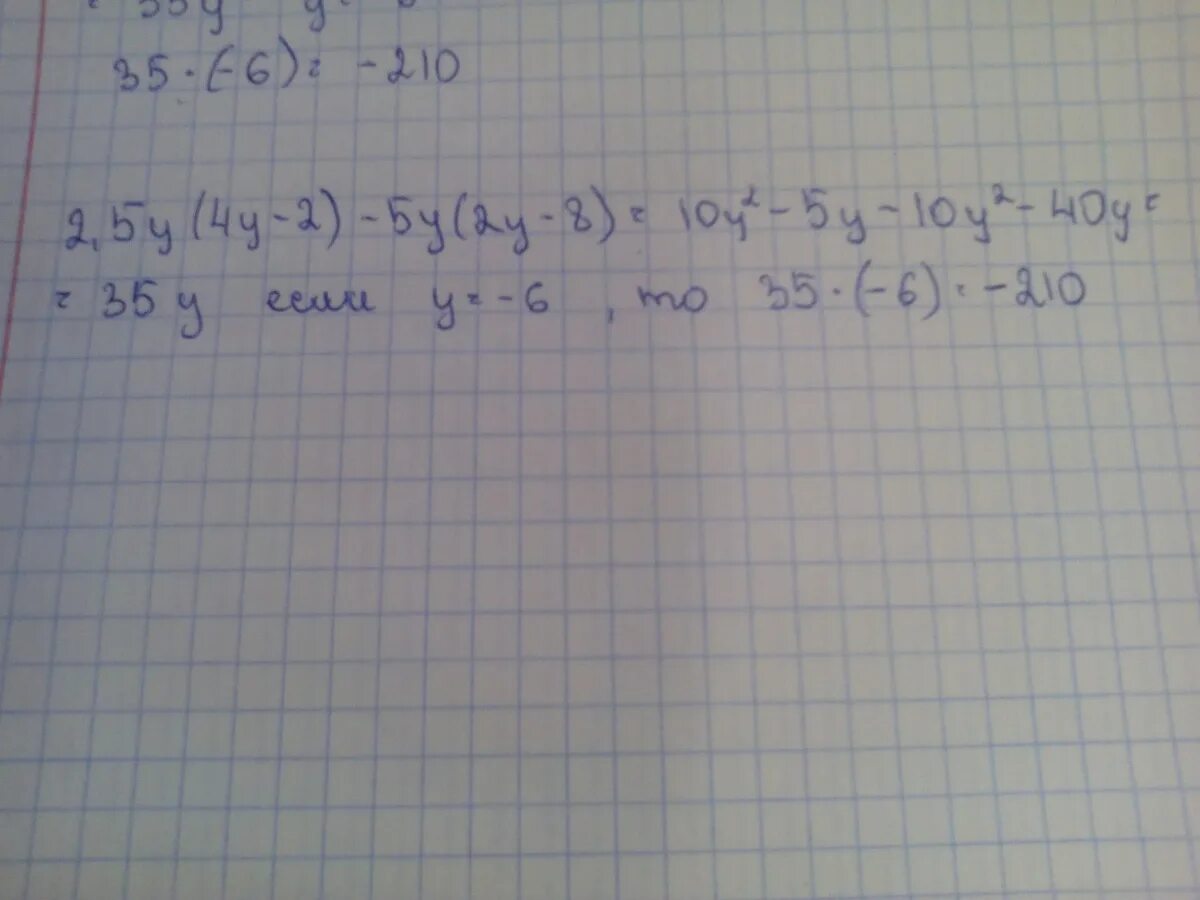 35 · (-6) = -210
2,5y (4y - 2) - 5y (2y - 8) = 10y² - 5y - 10y² - 40y =
= 35y если y = -6 , то 35 · (-6) = -210